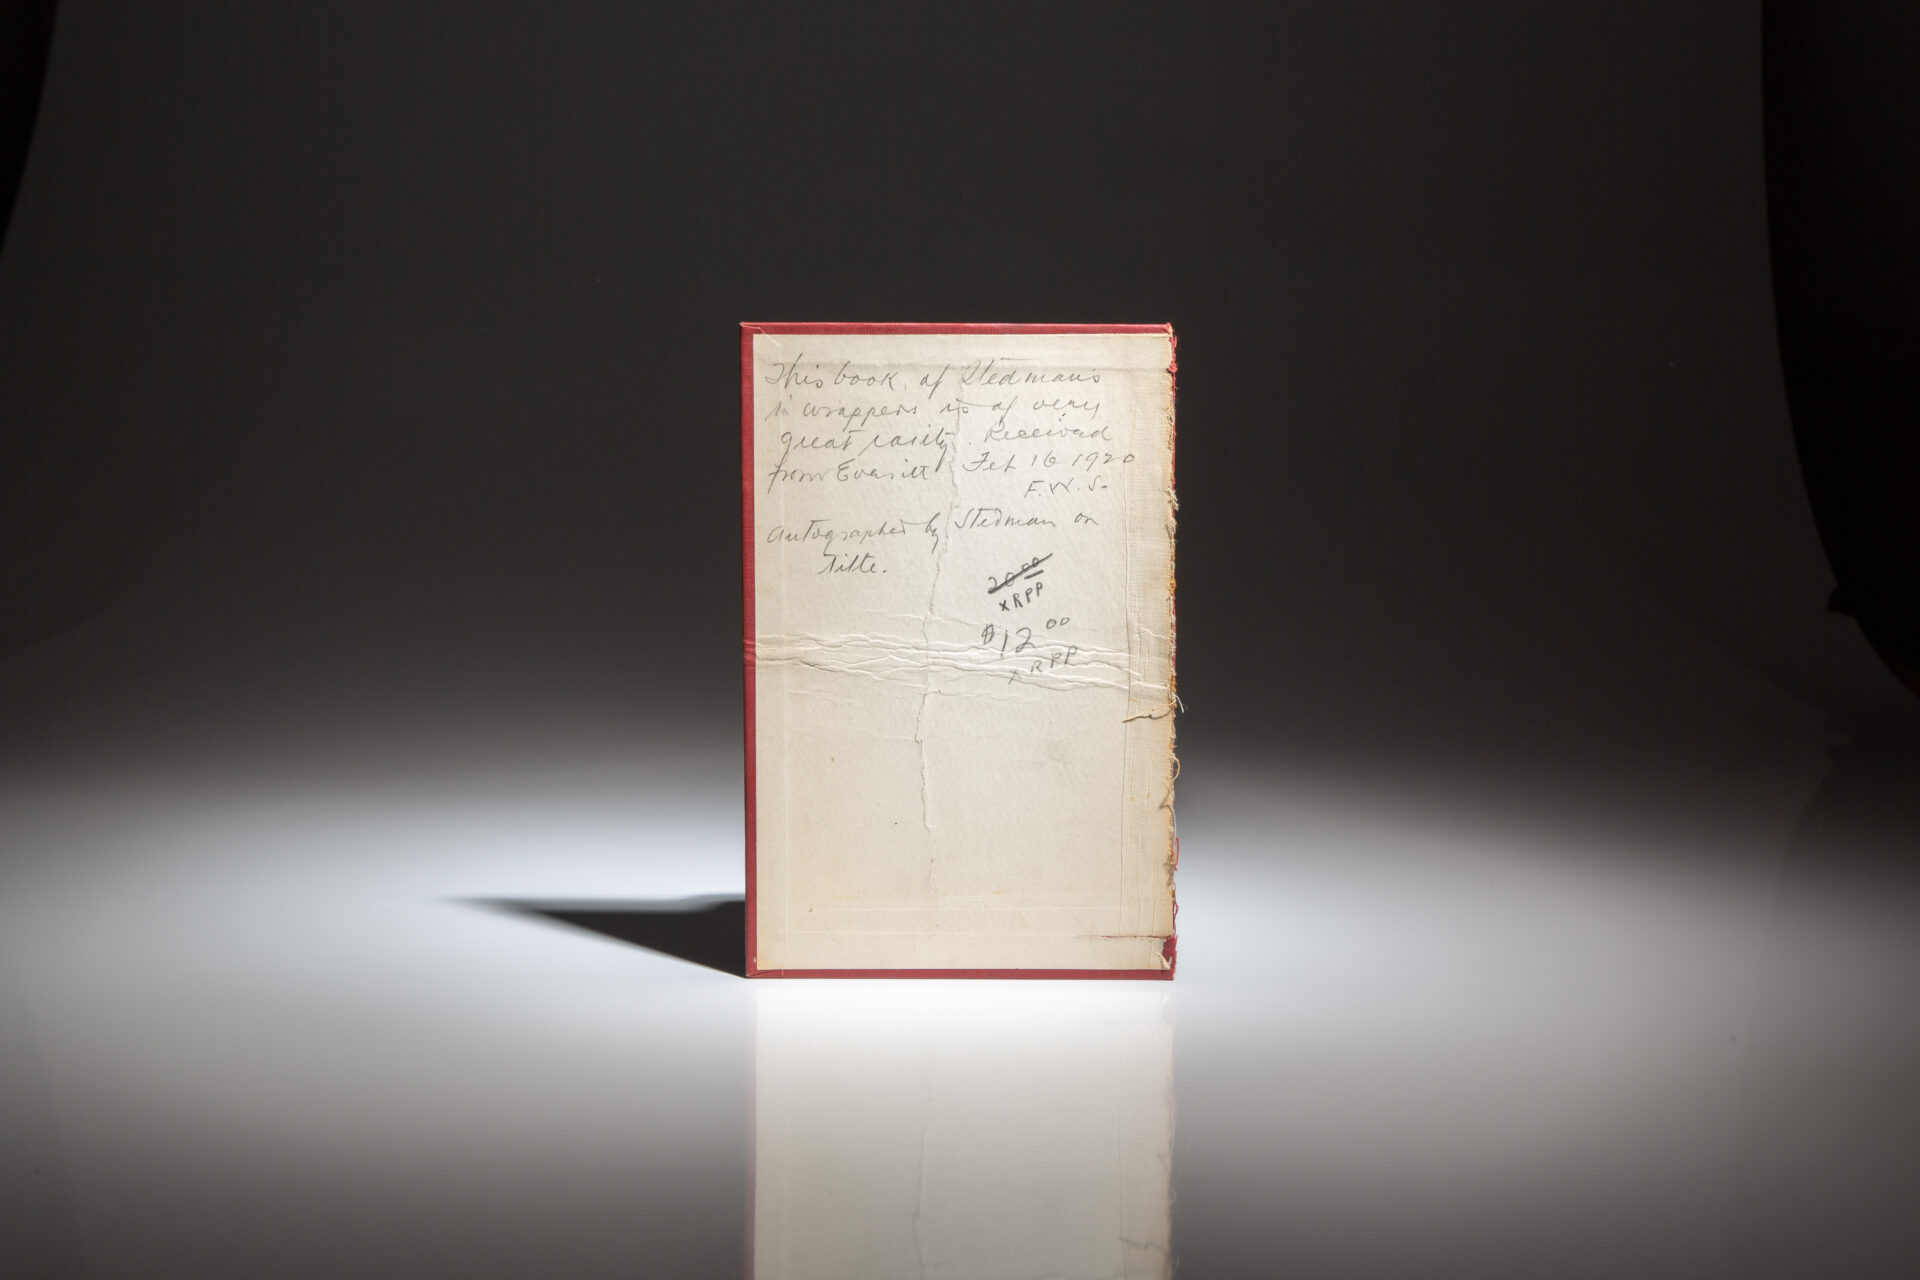 This book, of Stedman's
in wrappers is of very
great rarity. Received
from Everitt Feb 16 1920
F.W.S.
Autographed by Stedman on
title.
20.00
XRPP
$12.00
XRPP